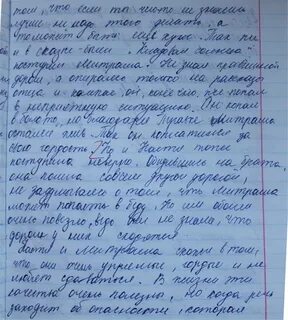 том, что если ты чего-то не знаешь
лучше не надо этого делать, а
то может быть ещё хуже. Так же
и в сказке-были "Кладовая солнца"
поступил Митраша. Не зная правильной
дороги, а опираясь только на рассказы
отца и компас он, конечно же попал
в неприятную ситуацию. Он попал
в болото, но благодаря Травке Митраша
остался жив. Так он поплатился за
свою гордость. Но и Настя тоже
поступила неверно. Обидевшись на брата,
она пошла совсем другой дорогой,
не задумываясь о том, что Митраша
может попасть в беду. Но им обоим
очень повезло, ведь они не знали, что
дороги у них сходятся.
Настя и Митраша схожи в том,
что они очень упрямые, гордые и не
любят сдаваться. В жизни эти
качества очень полезны, но когда речь
заходит об опасности, которая